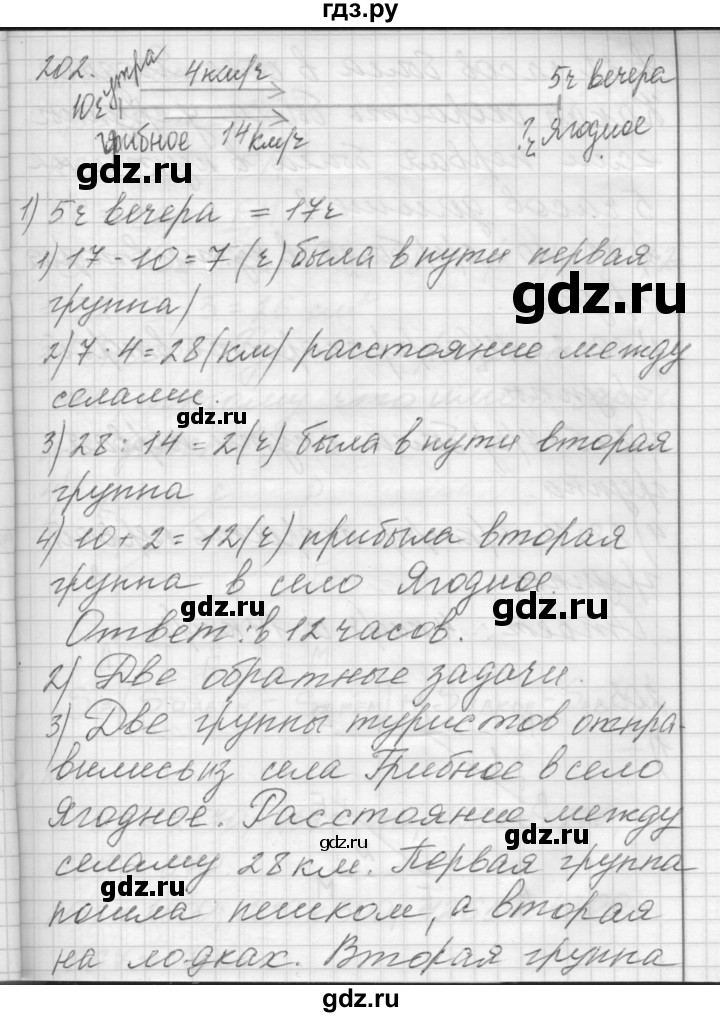 гдз.ру
202. 10ч утра 4км/ч 5ч вечера
Грибное 14км/ч ?ч Ягодное
gdz.ru
1) 5ч вечера = 17ч
1) 17 - 10 = 7 (ч) была в пути первая
gdz.ru
группа)
2) 7 · 4 = 28 (км) расстояние между
селами.
gdz.ru
3) 28 : 14 = 2 (ч) была в пути вторая
группа
4) 10 + 2 = 12 (ч) прибыла вторая
группа в село Ягодное.
gdz.ru
gdz.ru
Ответ: в 12 часов.
2) Две обратные задачи.
3) Две группы туристов отпра-
вились из села Грибное в село
Ягодное. Расстояние между
gdz.ru
gdz.ru
селаму 28 км. Первая группа
gdz.ru
пошла пешком, а вторая
на лодках. Вторая группа
gdz.ru